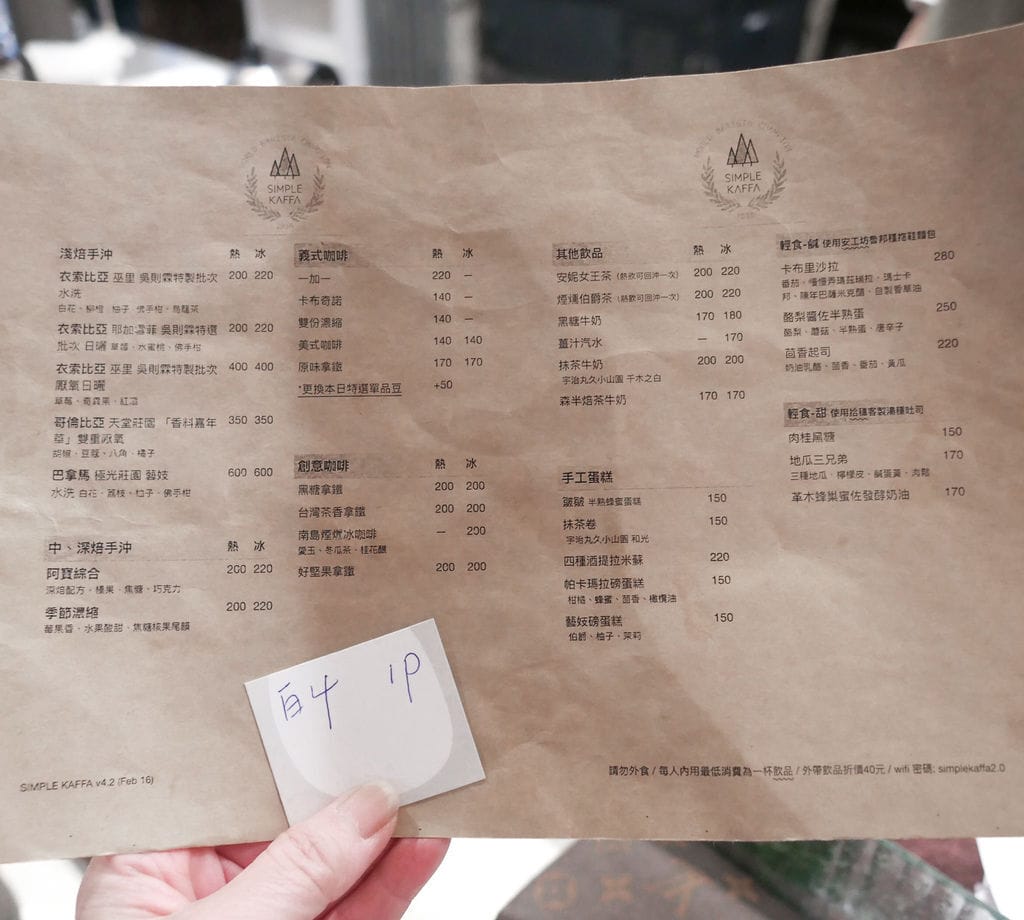 SIMPLE
KAFFA
淺焙手沖 熱 冰
衣索比亞 巫里 吳則霖特製批次 200 220
水洗
白花、柳橙、柚子、佛手柑、烏龍茶
衣索比亞 耶加雪菲 吳則霖特選 200 220
批次 日曬 草莓、水蜜桃、佛手柑
衣索比亞 巫里 吳則霖特製批次 400 400
厭氧日曬
草莓、奇異果、紅酒
哥倫比亞 天堂莊園 「香料嘉年 350 350
華」雙重厭氧
胡椒、豆蔻、八角、橘子
巴拿馬 極光莊園 藝妓 600 600
水洗 白花、荔枝、柚子、佛手柑
中、深焙手沖 熱 冰
阿寶綜合 200 220
深焙配方、榛果、焦糖、巧克力
季節濃縮 200 220
莓果香、水果酸甜、焦糖核果尾韻
義式咖啡 熱 冰
一加一 220 –
卡布奇諾 140 –
雙份濃縮 140 –
美式咖啡 140 140
原味拿鐵 170 170
*更換本日特選單品豆 +50
創意咖啡 熱 冰
黑糖拿鐵 200 200
台灣茶香拿鐵 200 200
南島煙燻冰咖啡 – 200
愛玉、冬瓜茶、桂花釀
好堅果拿鐵 200 200
SIMPLE
KAFFA
其他飲品 熱 冰
安妮女王茶 (熱飲可回沖一次) 200 220
煙燻伯爵茶 (熱飲可回沖一次) 200 220
黑糖牛奶 170 180
薑汁汽水 – 170
抹茶牛奶 200 200
宇治丸久小山園 千木之白
森半焙茶牛奶 170 170
手工蛋糕
皺皺 半熟蜂蜜蛋糕 150
抹茶卷 150
宇治丸久小山園 和光
四種酒提拉米蘇 220
帕卡瑪拉磅蛋糕 150
柑桔、蜂蜜、茴香、橄欖油
藝妓磅蛋糕 150
伯爵、柚子、茉莉
輕食-鹹 使用安工坊魯邦種拖鞋麵包
卡布里沙拉 280
番茄、慢慢弄瑪茲瑞拉、瑪士卡
邦、陳年巴薩米克醋、自製香草油
酪梨醬佐半熟蛋 250
酪梨、蘑菇、半熟蛋、唐辛子
茴香起司 220
奶油乳酪、茴香、番茄、黃瓜
輕食-甜 使用拾穗客製湯種吐司
肉桂黑糖 150
地瓜三兄弟 170
三種地瓜、檸檬皮、鹹蛋黃、肉鬆
革木蜂巢蜜佐發酵奶油 170
1P
SIMPLE KAFFA v4.2 (Feb 16)
請勿外食 / 每人內用最低消費為一杯飲品 / 外帶飲品折價40元 / wifi 密碼: simplekaffa2.0